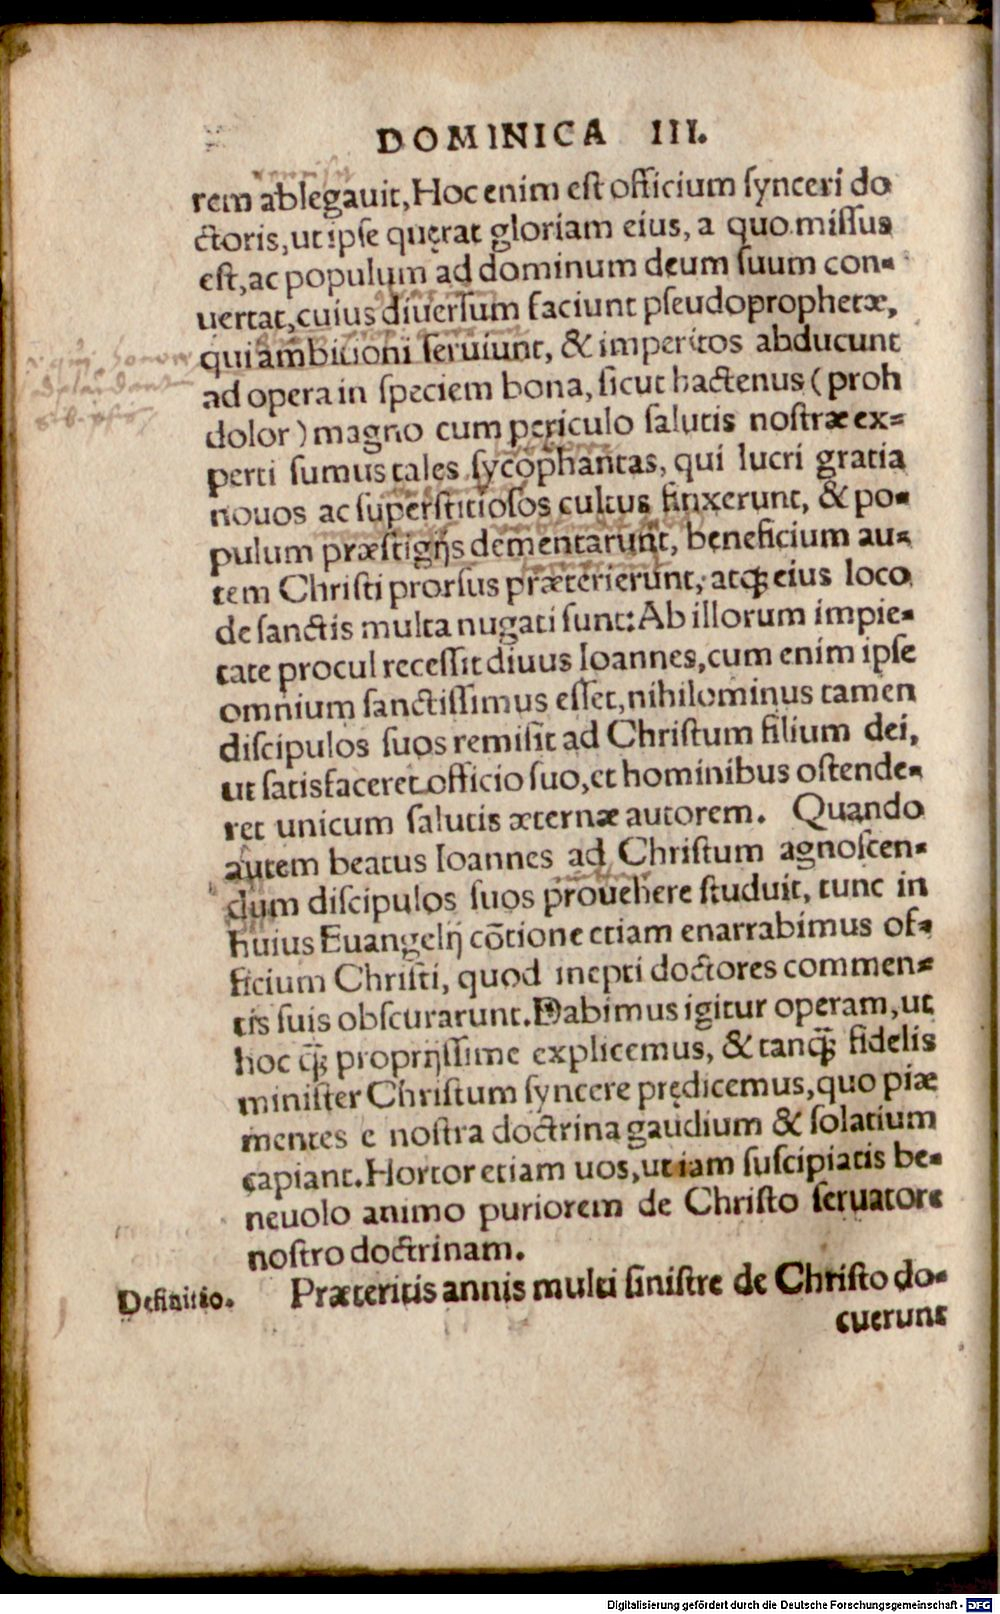 DOMINICA III.
rem ablegauit, Hoc enim est officium synceri do
ctoris, ut ipse quęrat gloriam eius, a quo missus
est, ac populum ad dominum deum suum con=
uertat, cuius diuersum faciunt pseudoprophetæ,
qui ambitioni seruiunt, & imperitos abducunt
ad opera in speciem bona, sicut hactenus (proh
dolor) magno cum periculo salutis nostræ ex=
perti sumus tales sycophantas, qui lucri gratia
nouos ac superstitiosos cultus finxerunt, & po=
pulum præstigijs dementarunt, beneficium au=
tem Christi prorsus præterierunt, atq; eius loco
de sanctis multa nugati sunt: Ab illorum impie=
tate procul recessit diuus Ioannes, cum enim ipse
omnium sanctissimus esset, nihilominus tamen
discipulos suos remisit ad Christum filium dei,
ut satisfaceret officio suo, et hominibus ostende=
ret unicum salutis æternæ autorem. Quando
autem beatus Ioannes ad Christum agnoscen=
dum discipulos suos prouehere studuit, tunc in
huius Euangelij cōtione etiam enarrabimus of=
ficium Christi, quod inepti doctores commen=
tis suis obscurarunt. Dabimus igitur operam, ut
hoc q̃; proprijssime explicemus, & tanq̃; fidelis
minister Christum syncere prędicemus, quo piæ
mentes e nostra doctrina gaudium & solatium
capiant. Hortor etiam uos, ut iam suscipiatis be=
neuolo animo puriorem de Christo seruatore
nostro doctrinam.
Definitio. Præteritis annis multi sinistre de Christo do=
cuerunt
Digitalisierung gefördert durch die Deutsche Forschungsgemeinschaft - DFG